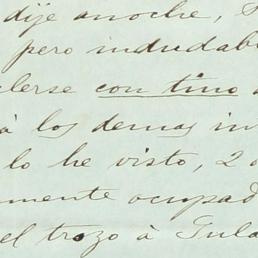 dije anoche,
pero indudab
clerse con tino
à los demas in
lo he visto, 2
mente ocupad
el trozo à Gula